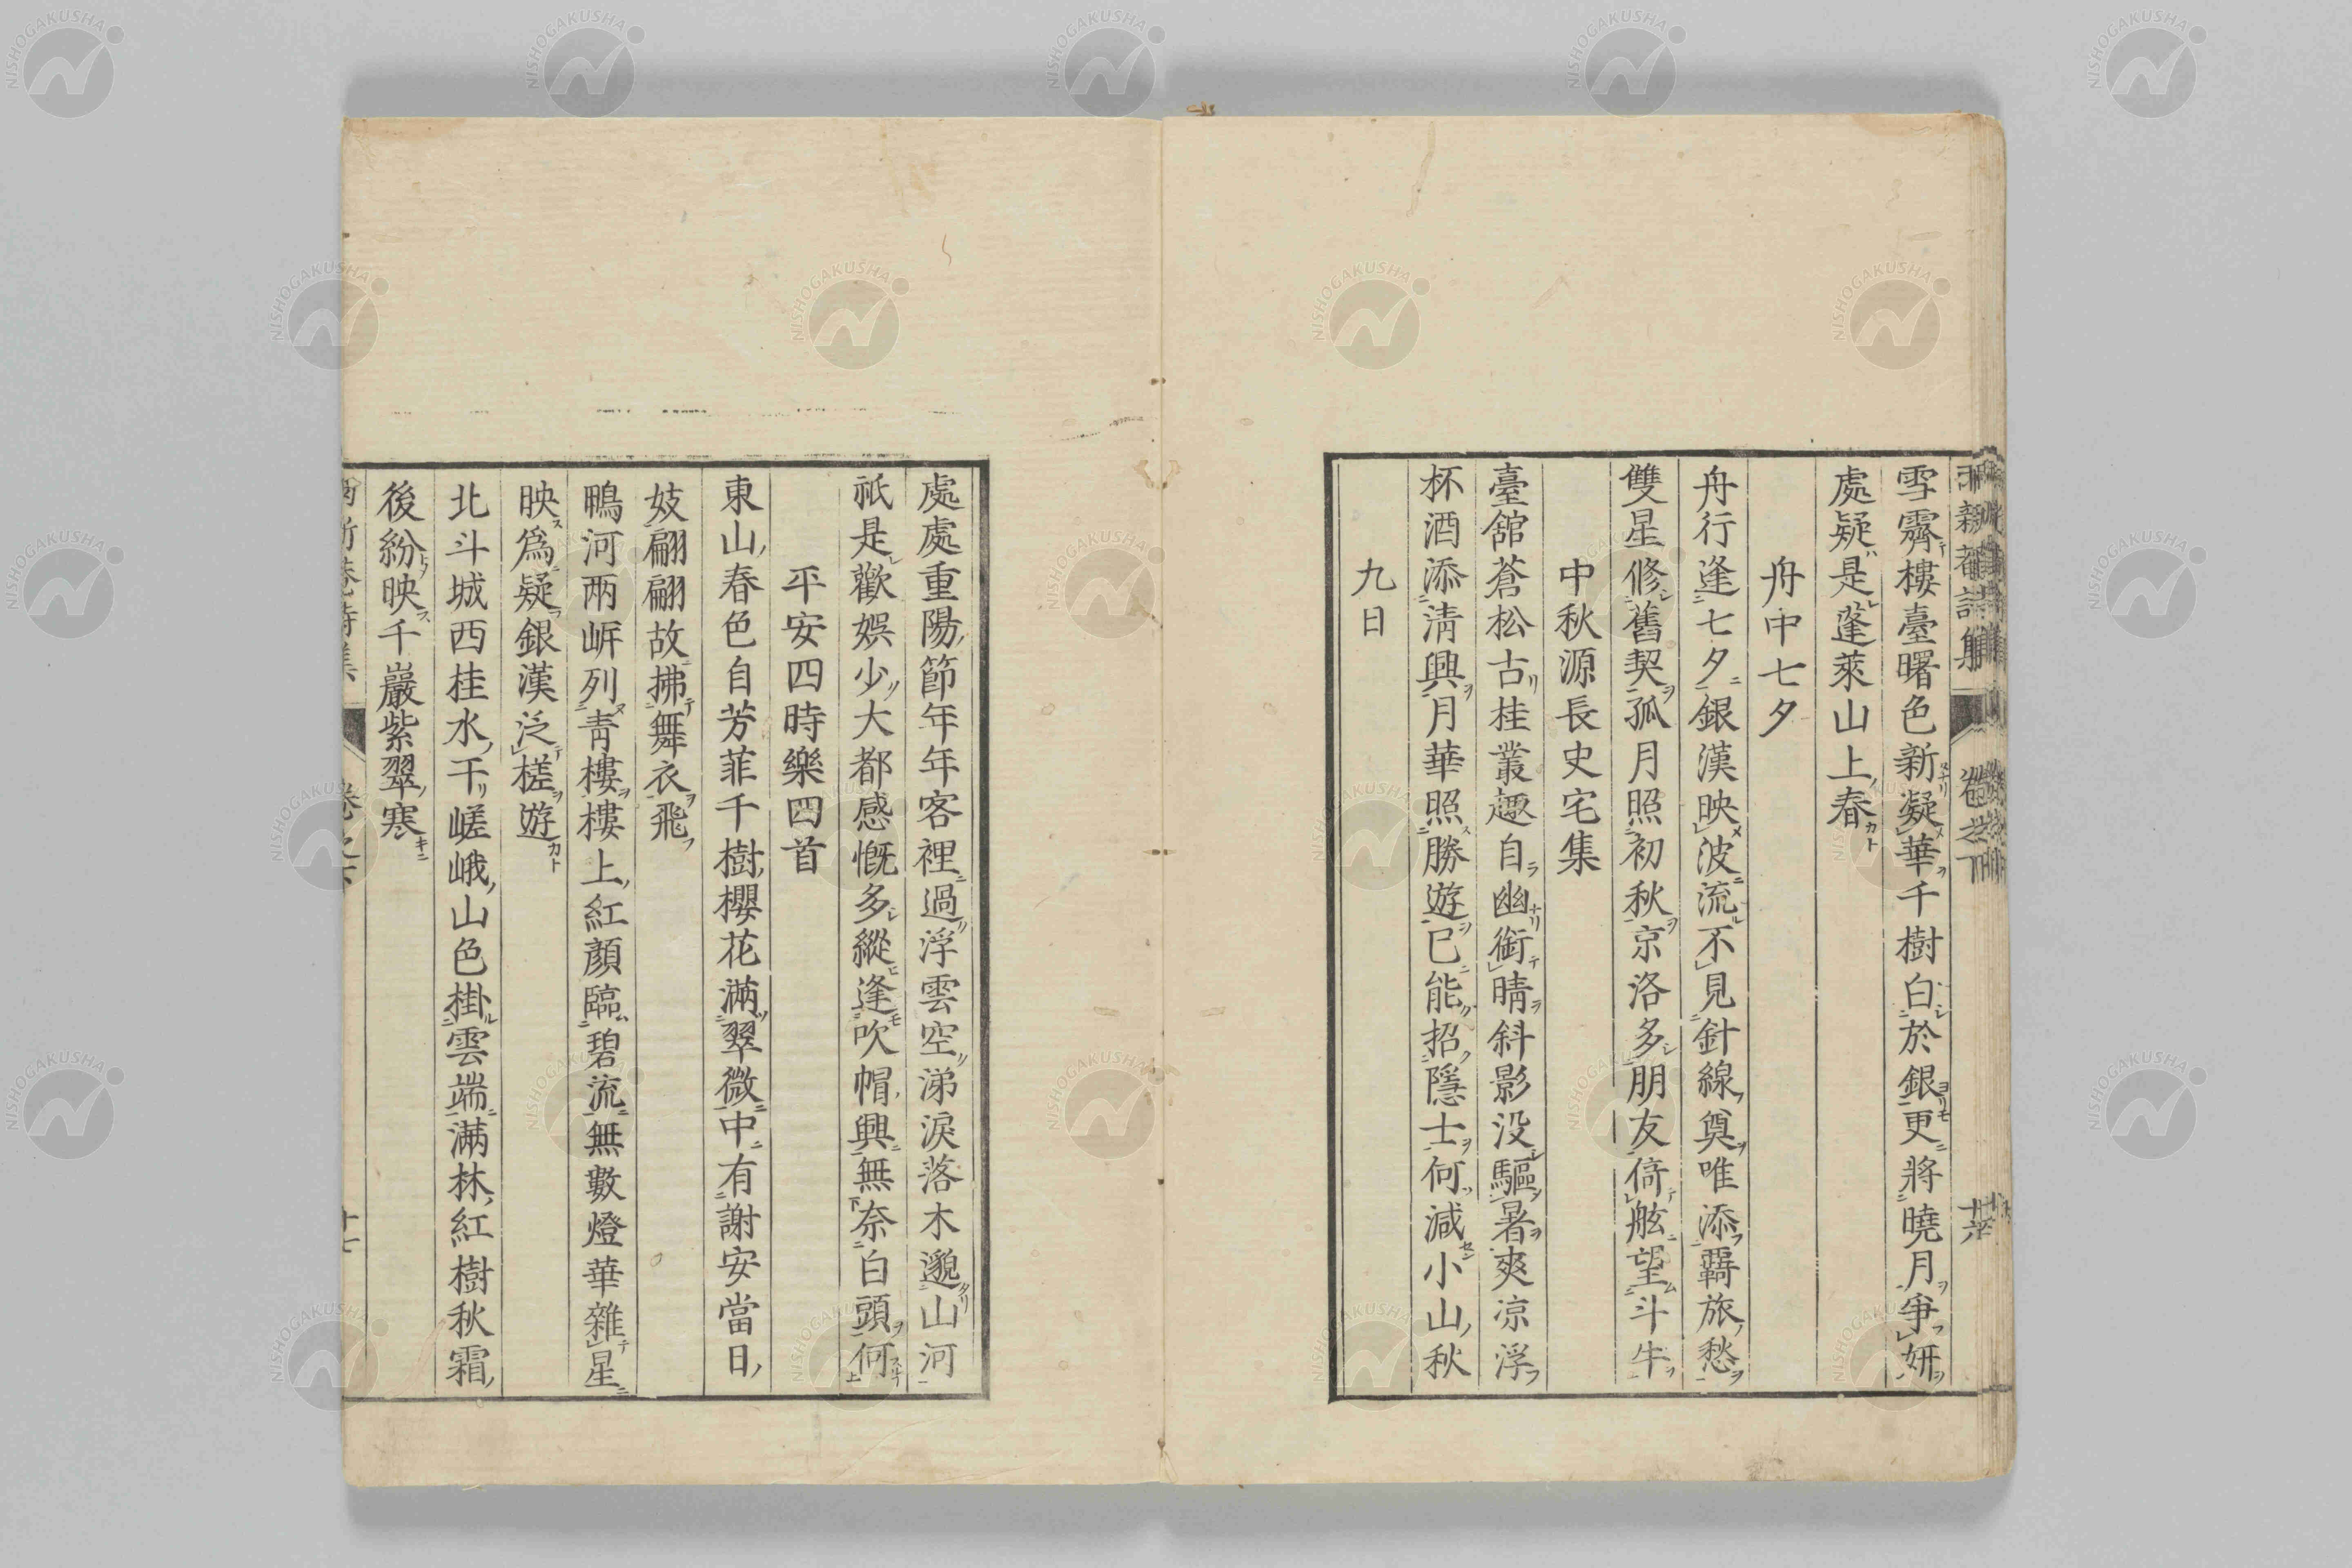 雪霽樓臺曙色新凝華千樹白於銀更將曉月爭妍
處疑是蓬萊山上春
舟中七夕
舟行逢七夕銀漢映波流不見針線奠唯添羇旅愁
雙星修舊契孤月照初秋京洛多朋友倚舷望斗牛
中秋源長史宅集
臺舘蒼松古桂叢趣自幽銜晴斜影没驅暑爽凉浮
杯酒添淸興月華照勝遊已能招隱士何減小山秋
九日
處處重陽節年年客裡過浮雲空涕淚落木邈山河
祇是歡娯少大都感慨多縱逢吹帽興無奈白頭何
平安四時樂四首
東山春色自芳菲千樹櫻花滿翠微中有謝安當日
妓翩翩故拂舞衣飛
鴨河兩岸列靑樓樓上紅顏臨碧流無數燈華雜星
映爲疑銀漢泛槎遊
北斗城西桂水干嵯峨山色掛雲端滿林紅樹秋霜
後紛映千巖紫翠寒
卷之下
十七
NISHOGAKUSHA